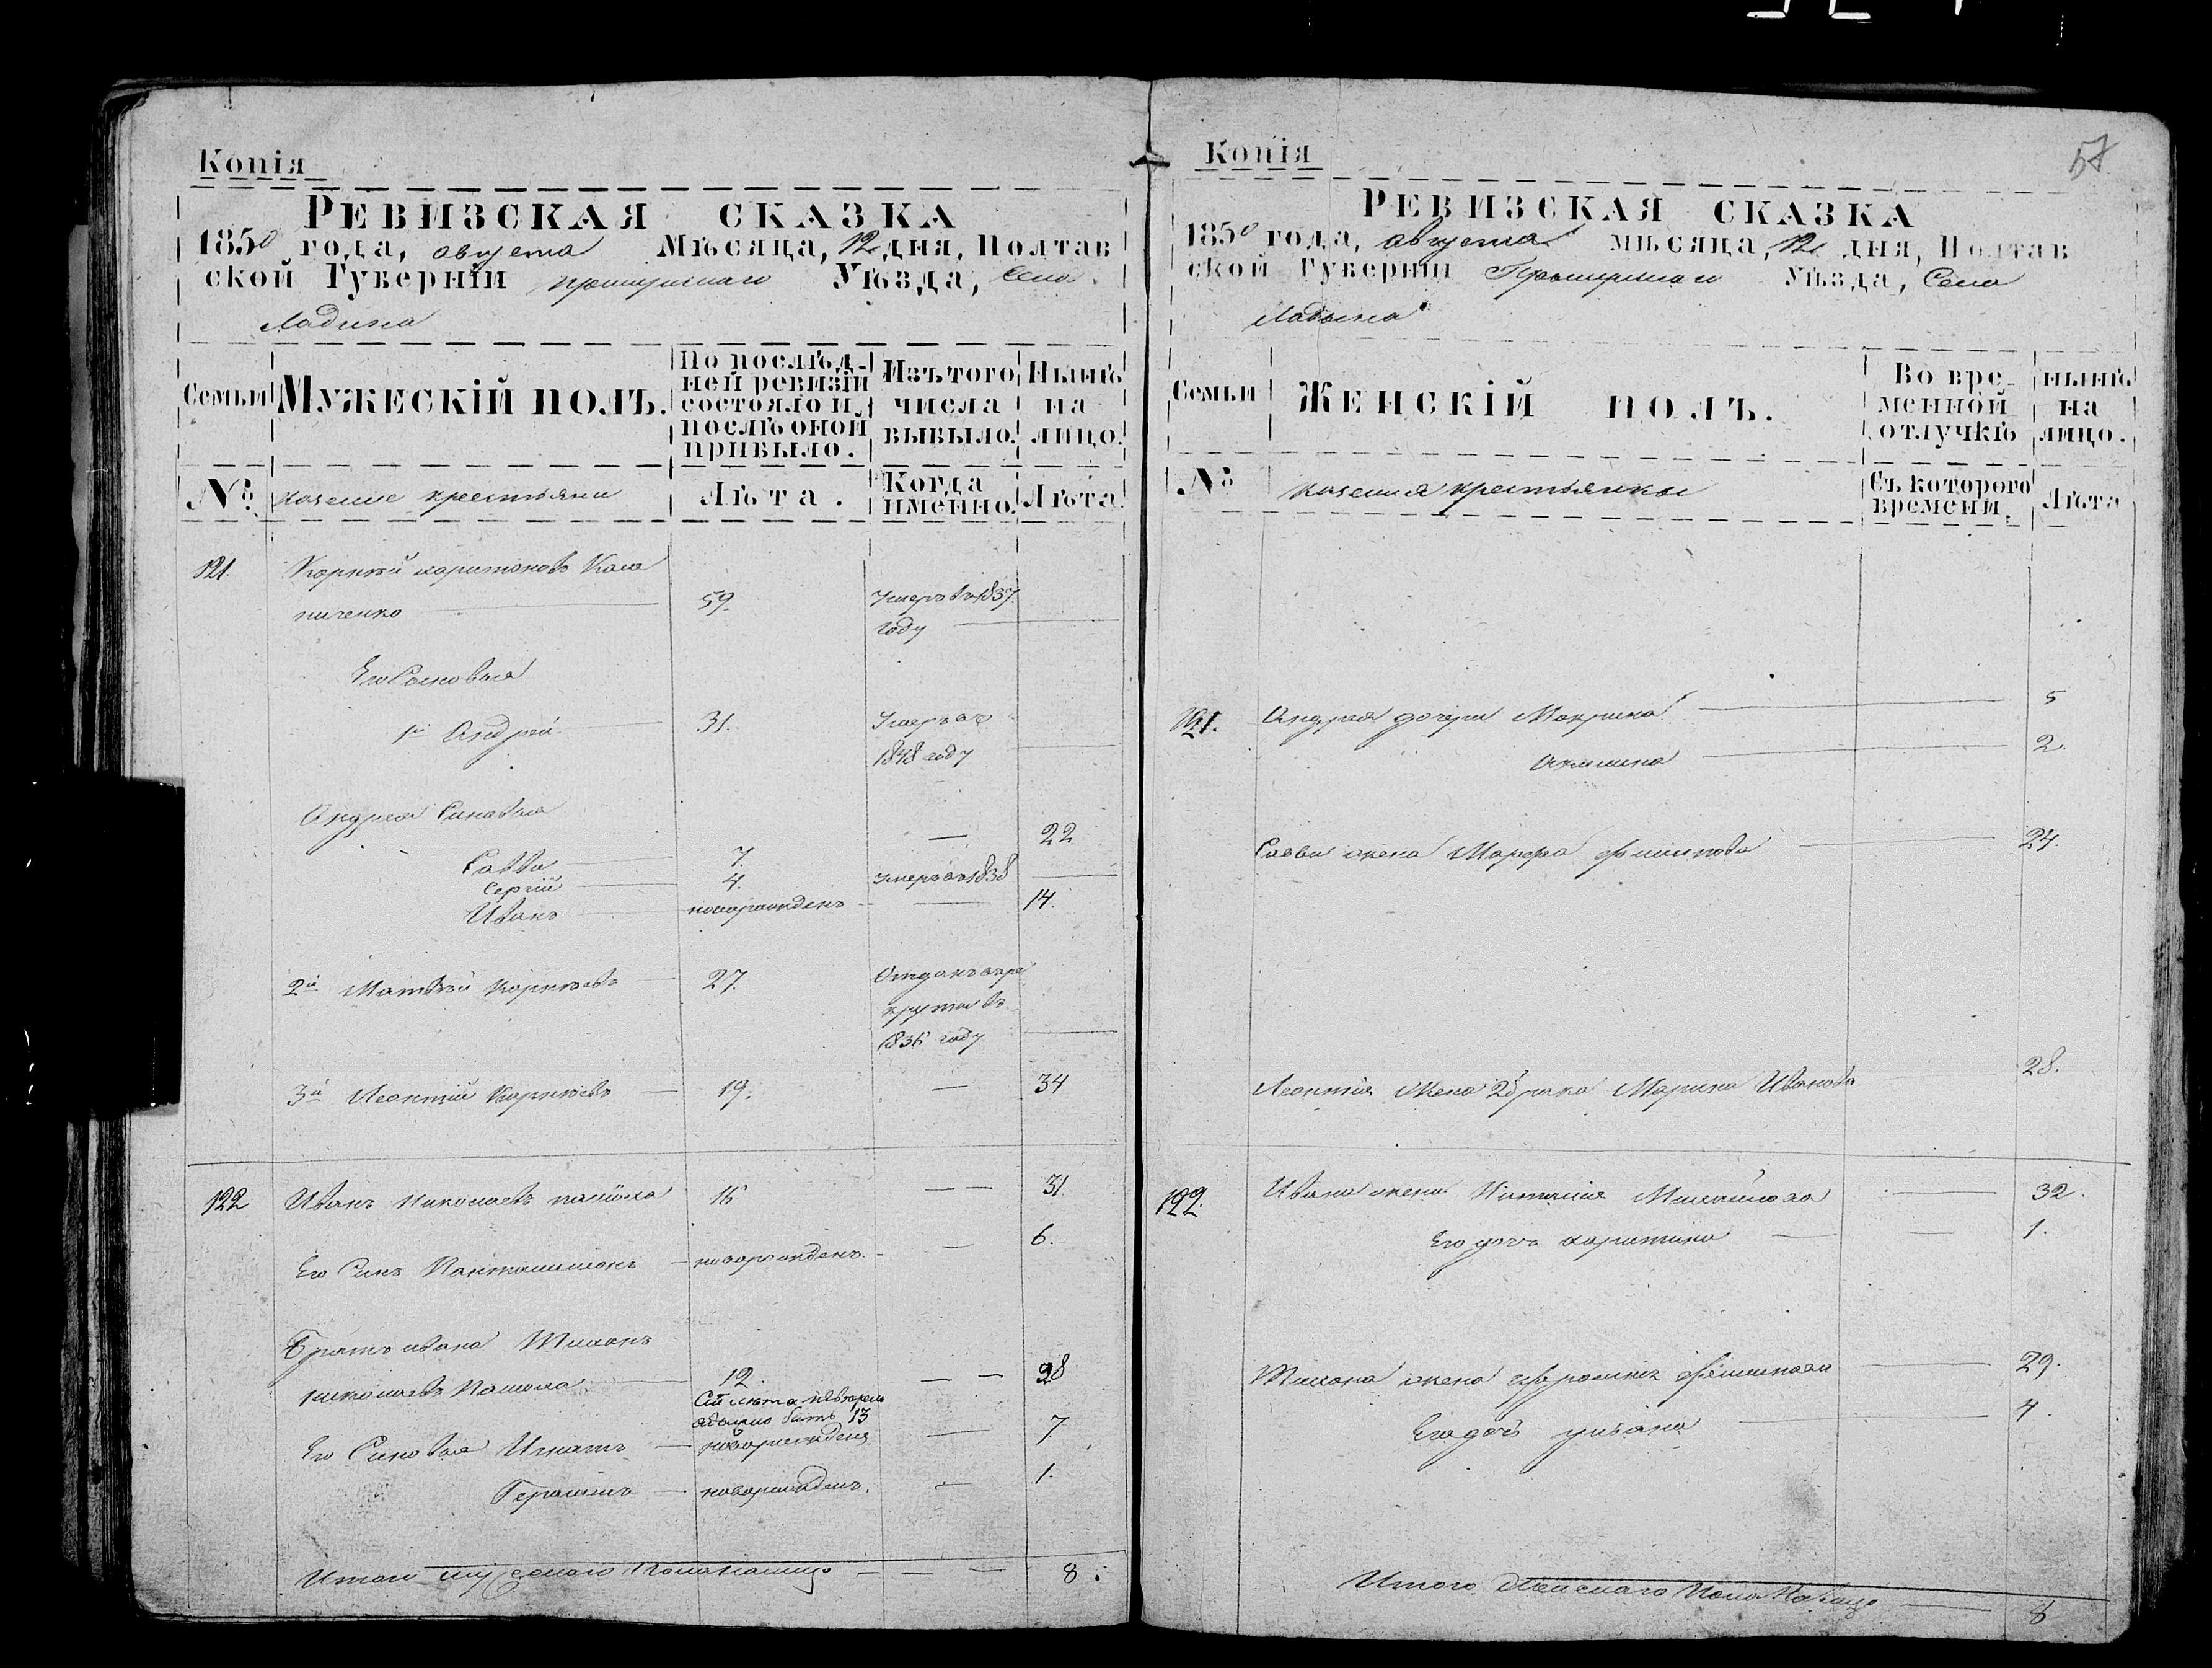 57
Копія
РЕВИЗСКАЯ СКАЗКА
1850 года, августа Мѣсяца, 12 дня, Полтав
ской Губерніи прилуцкаго Уѣзда, Села
Ладина
Семьи
МУЖЕСКІЙ ПОЛЪ.
По послѣд-
ней ревизіи
состояло и
послѣ оной
прибыло.
Изъ того
числа
выбыло.
Нынѣ
на
лицо.
№
казение крестьяни
Лѣта.
Когда
именно.
Лѣта
121. Корнѣй харитоновъ Кала
ниченко 59. Умеръ въ 1837
году
Его Сыновья
1й Андрей 31. Умеръ въ
1848 году
Андрея Синовья
Савва 7. — 22
Сергій 4. умеръ въ 1838
Иванъ новорожденъ — 14.
2й Матвѣй Корнѣевъ 27 Отданъ в ре
круты въ
1836 году
3й Леонтій Корнѣевъ — 19. — 34
122 Иванъ Николаевъ 15 — — 31
Его Синъ Пантилимонъ — новорожденъ — 6.
Братъ ивана Тихонъ
николаевъ 12. — — 28
Сій лѣта
должно бытъ 13
Его Синовья Игнатъ — новорожденъ — 7.
Герасимъ — новорожденъ. — 1.
Итого мужескаго Пола Налицо — — — 8.
Копія
РЕВИЗСКАЯ СКАЗКА
1850 года, августа мѣсяца, 12 дня, Полтав
ской Губерніи Прилуцкаго Уѣзда, Села
Ладына
Семьи
ЖЕНСКІЙ ПОЛЪ.
Во вре-
менной
отлучкѣ
нынѣ
на
лицо.
№
казения крестьянки
Съ которого
времени.
Лѣта
121. Андрея дочери Макрина 5
Акилина 2.
Савви жена Марфа Филипова 24.
Леонтія Жена 2 брака Марина Иванова 28.
122. Ивана жена Наталія Михайлова — 32.
Его дочь харитина — — 1.
Тихона жена Филипова 29.
Его дочь уліана 4.
Итого Женскаго Пола Налицо — 8